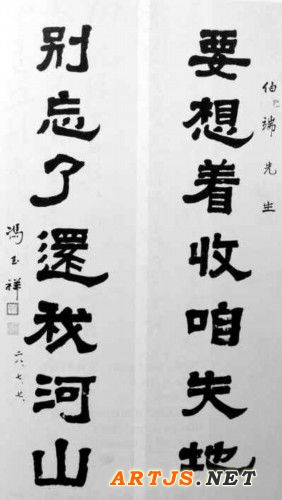 伯端先生
要想着收咱失地
别忘了還我河山
馮玉祥
二六.七.七.
ARTJS.NET